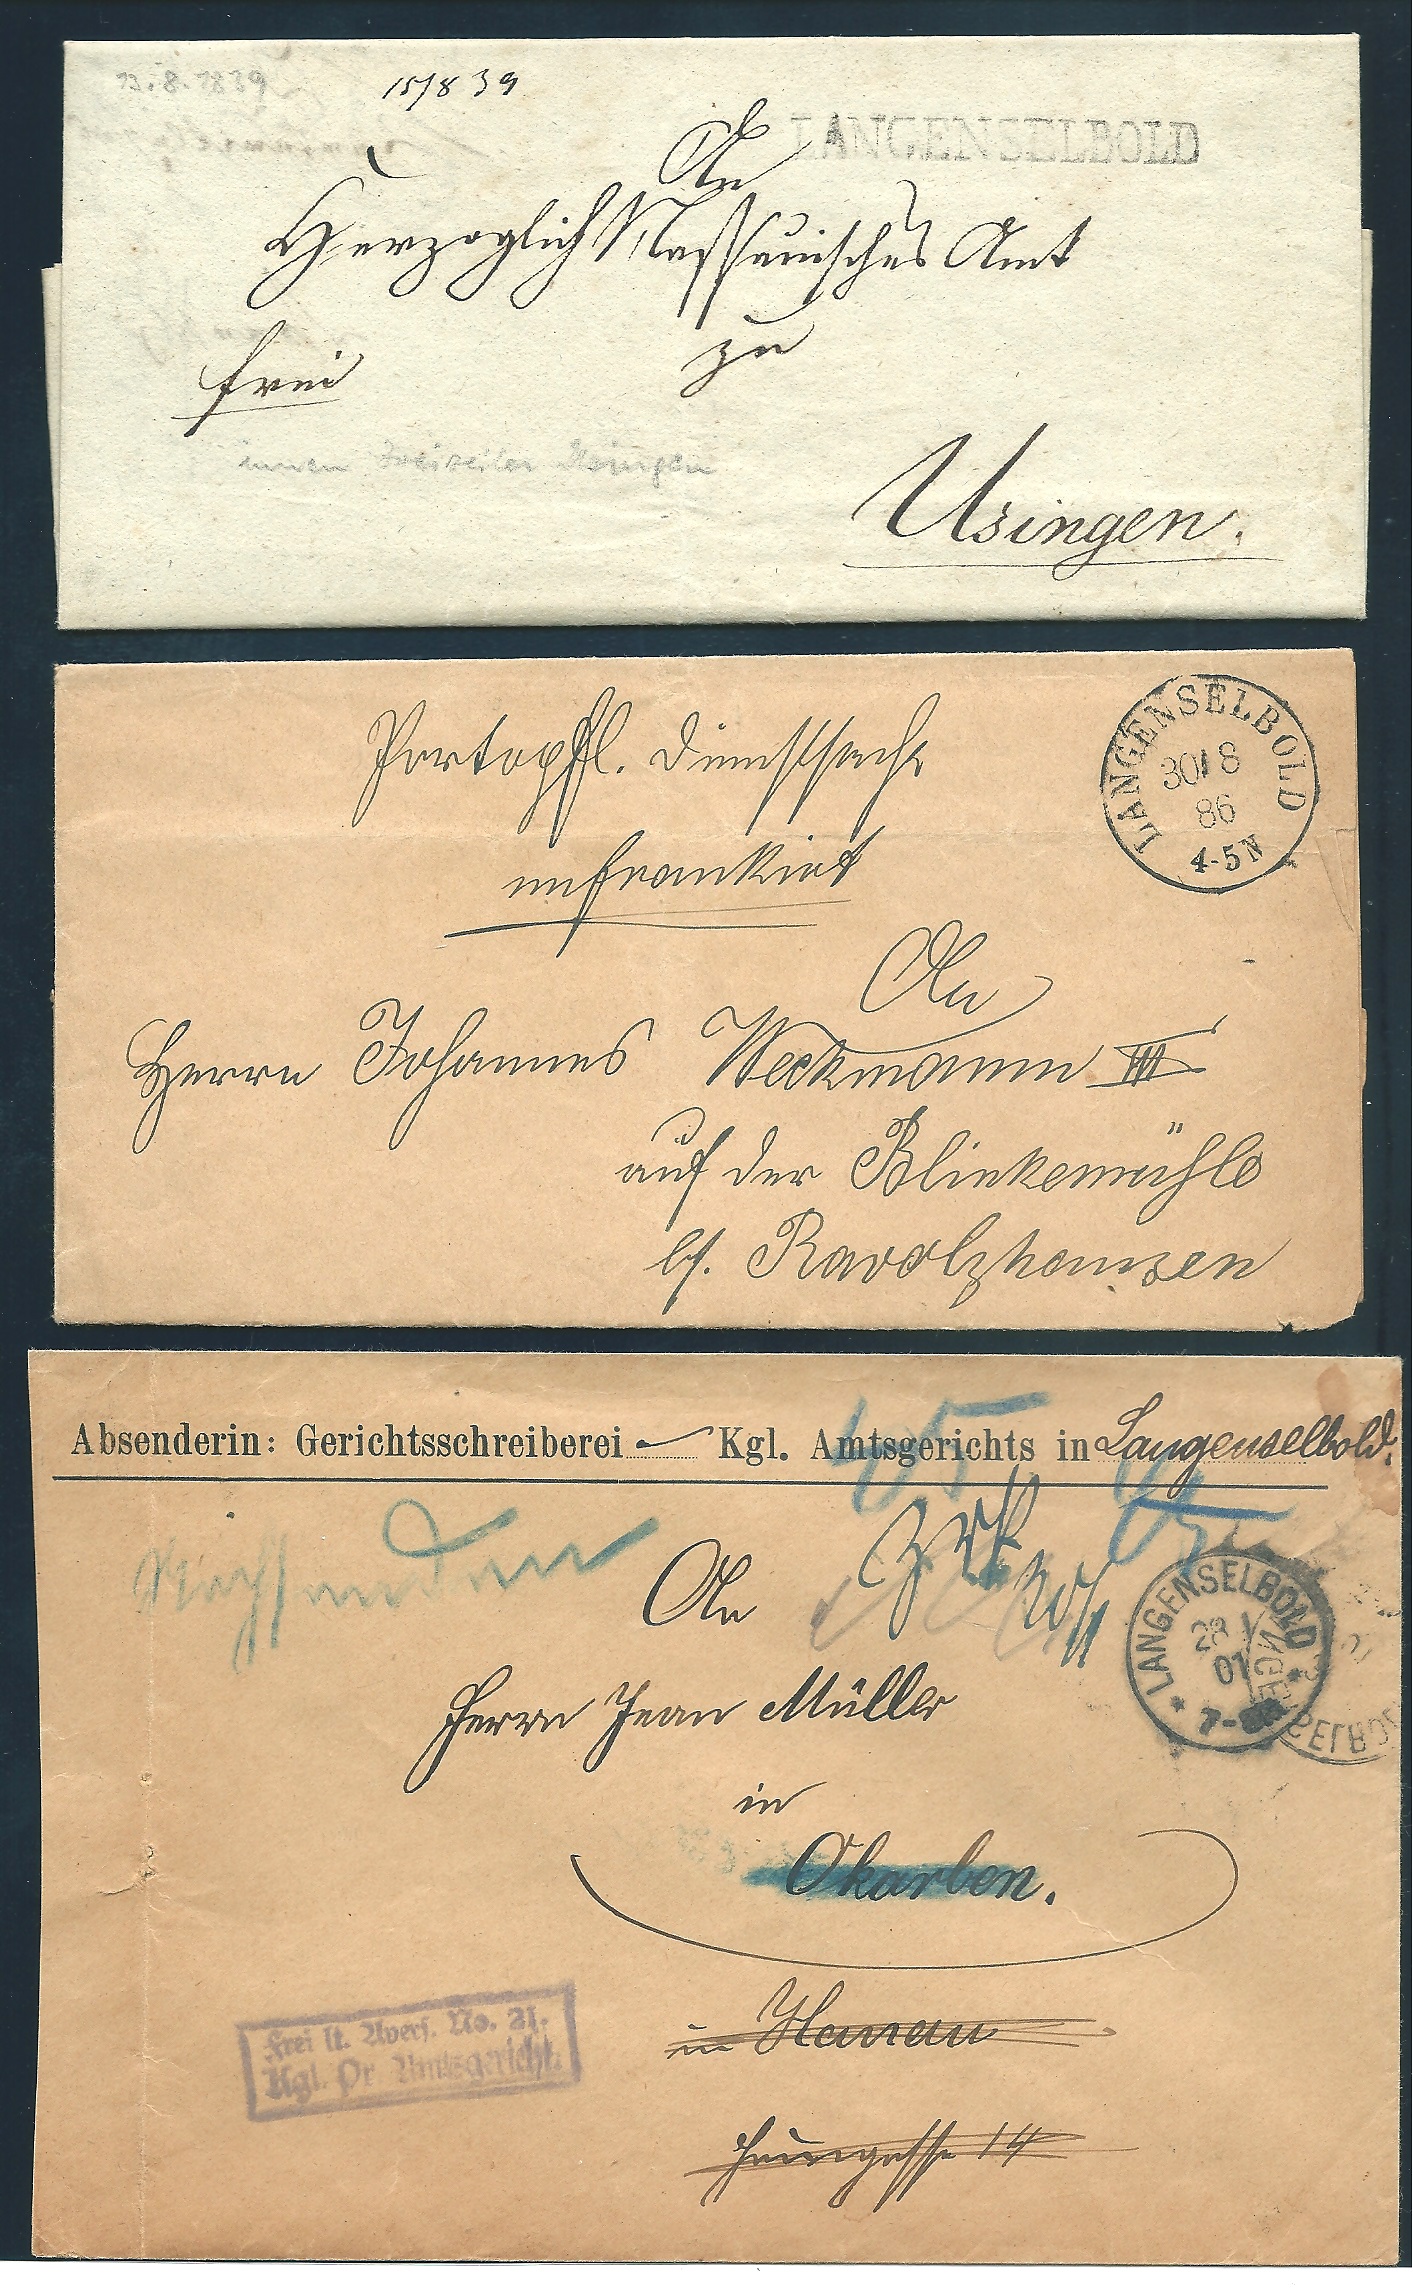 13.8.1839
15/8 39
LANGENSELBOLD
An
Herzoglich Nassauisches Amt
zu
frei
innen Zweizeiler Usingen
Usingen.
LANGENSELBOLD
30/8
86
4-5N
Portopfl. Dienstsache
unfrankirt
An
Herrn Johannes Weckmann III
auf der Blinkemühle
bf. Ravolzhausen
Absenderin: Gerichtsschreiberei Kgl. Amtsgerichts in Langenselbold.
Nachsenden
An
LANGENSELBOLD
28 1
01
7-8
Herrn Jean Müller
in
Okarben.
in Hanau
Frei lt. Avers. No. 21.
Kgl. Pr. Amtsgericht.
14